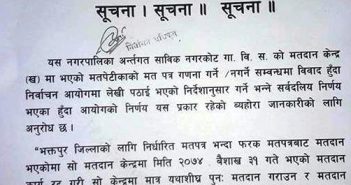 सूचना । सूचना ॥ सूचना ॥
यस नगरपालिका अर्न्तगत साबिक नगरकोट गा. वि. स.को मतदान केन्द्र
(ख) मा भएको मतपेटीकाको मत पत्र गणना गर्ने /नगर्ने सम्बन्धमा विवाद हुँदा
निर्वाचन आयोगमा लेखी पठाई भएको निर्देशानुसार गर्ने भन्ने सर्वदलिय निर्णय
भएका हुँदा आयोगको निर्णय यस प्रकार रहेको व्यहोरा जानकारीको लागि
अनुरोध छ ।
"भक्तपुर जिल्लाको लागि निर्धारित मतपत्र भन्दा फरक मतपत्रबाट मतदान
भएकोमा सो मतदान केन्द्रमा मिति २०७४ बैशाख ३१ गते भएको मतदान
कार्य रद्द गरी सो केन्द्रमा मात्र यथाशीघ्र पुनः मतदान गराउन र मतदान